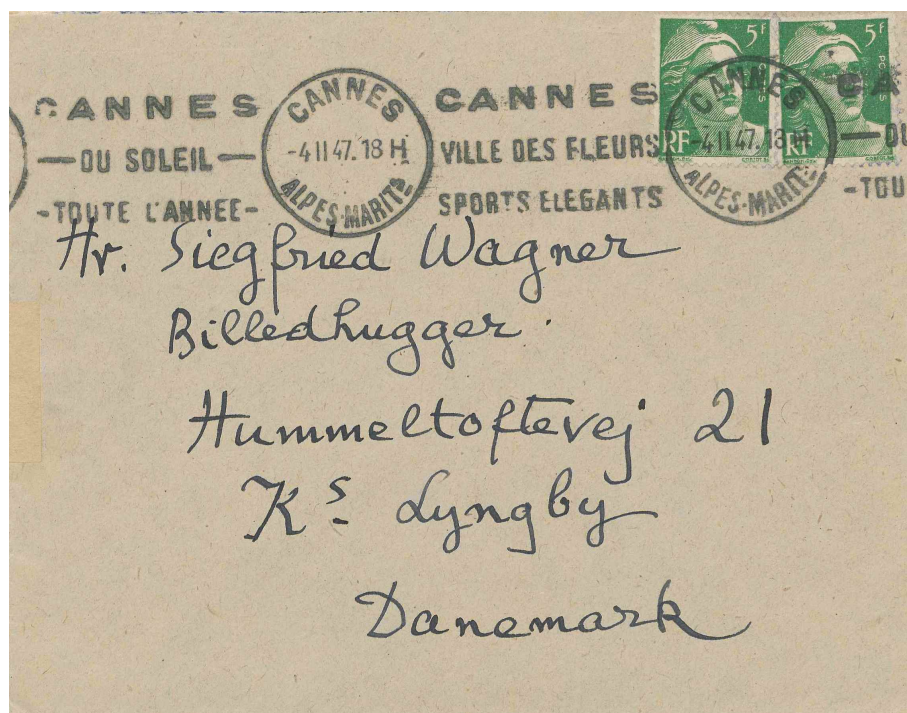 CANNES
DU SOLEIL
-TOUTE L'ANNEE-
CANNES
-4 II 47. 18 H
ALPES-MARITES
CANNES
VILLE DES FLEURS
SPORTS ELEGANTS
5F
RF
5F
POSTES
RF
CANNES
-4 II 47. 18 H
ALPES-MARITES
CA
DU
-TOU
Hr. Siegfried Wagner
Billedhugger.
Hummeltoftevej 21
Ks. Lyngby
Danemark